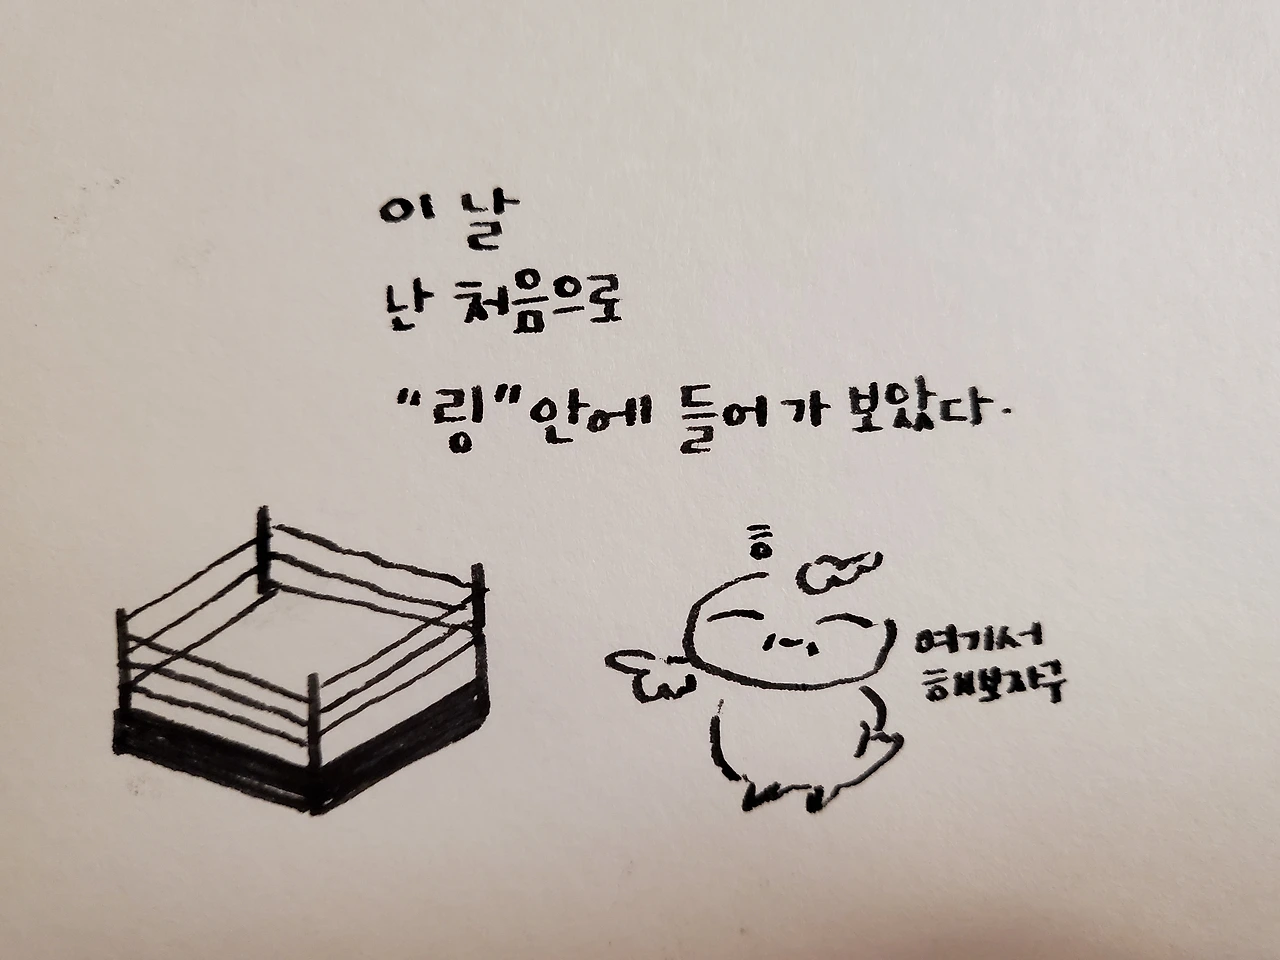 이 날
난 처음으로
"링" 안에 들어가 보았다.
흥
여기서
해보자구